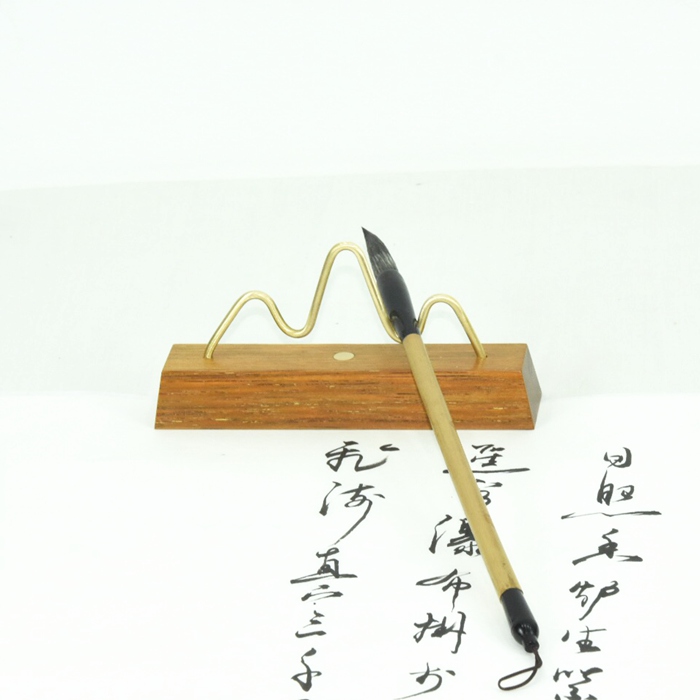 日照香炉生紫
遥看瀑布掛前
飛流直下三千